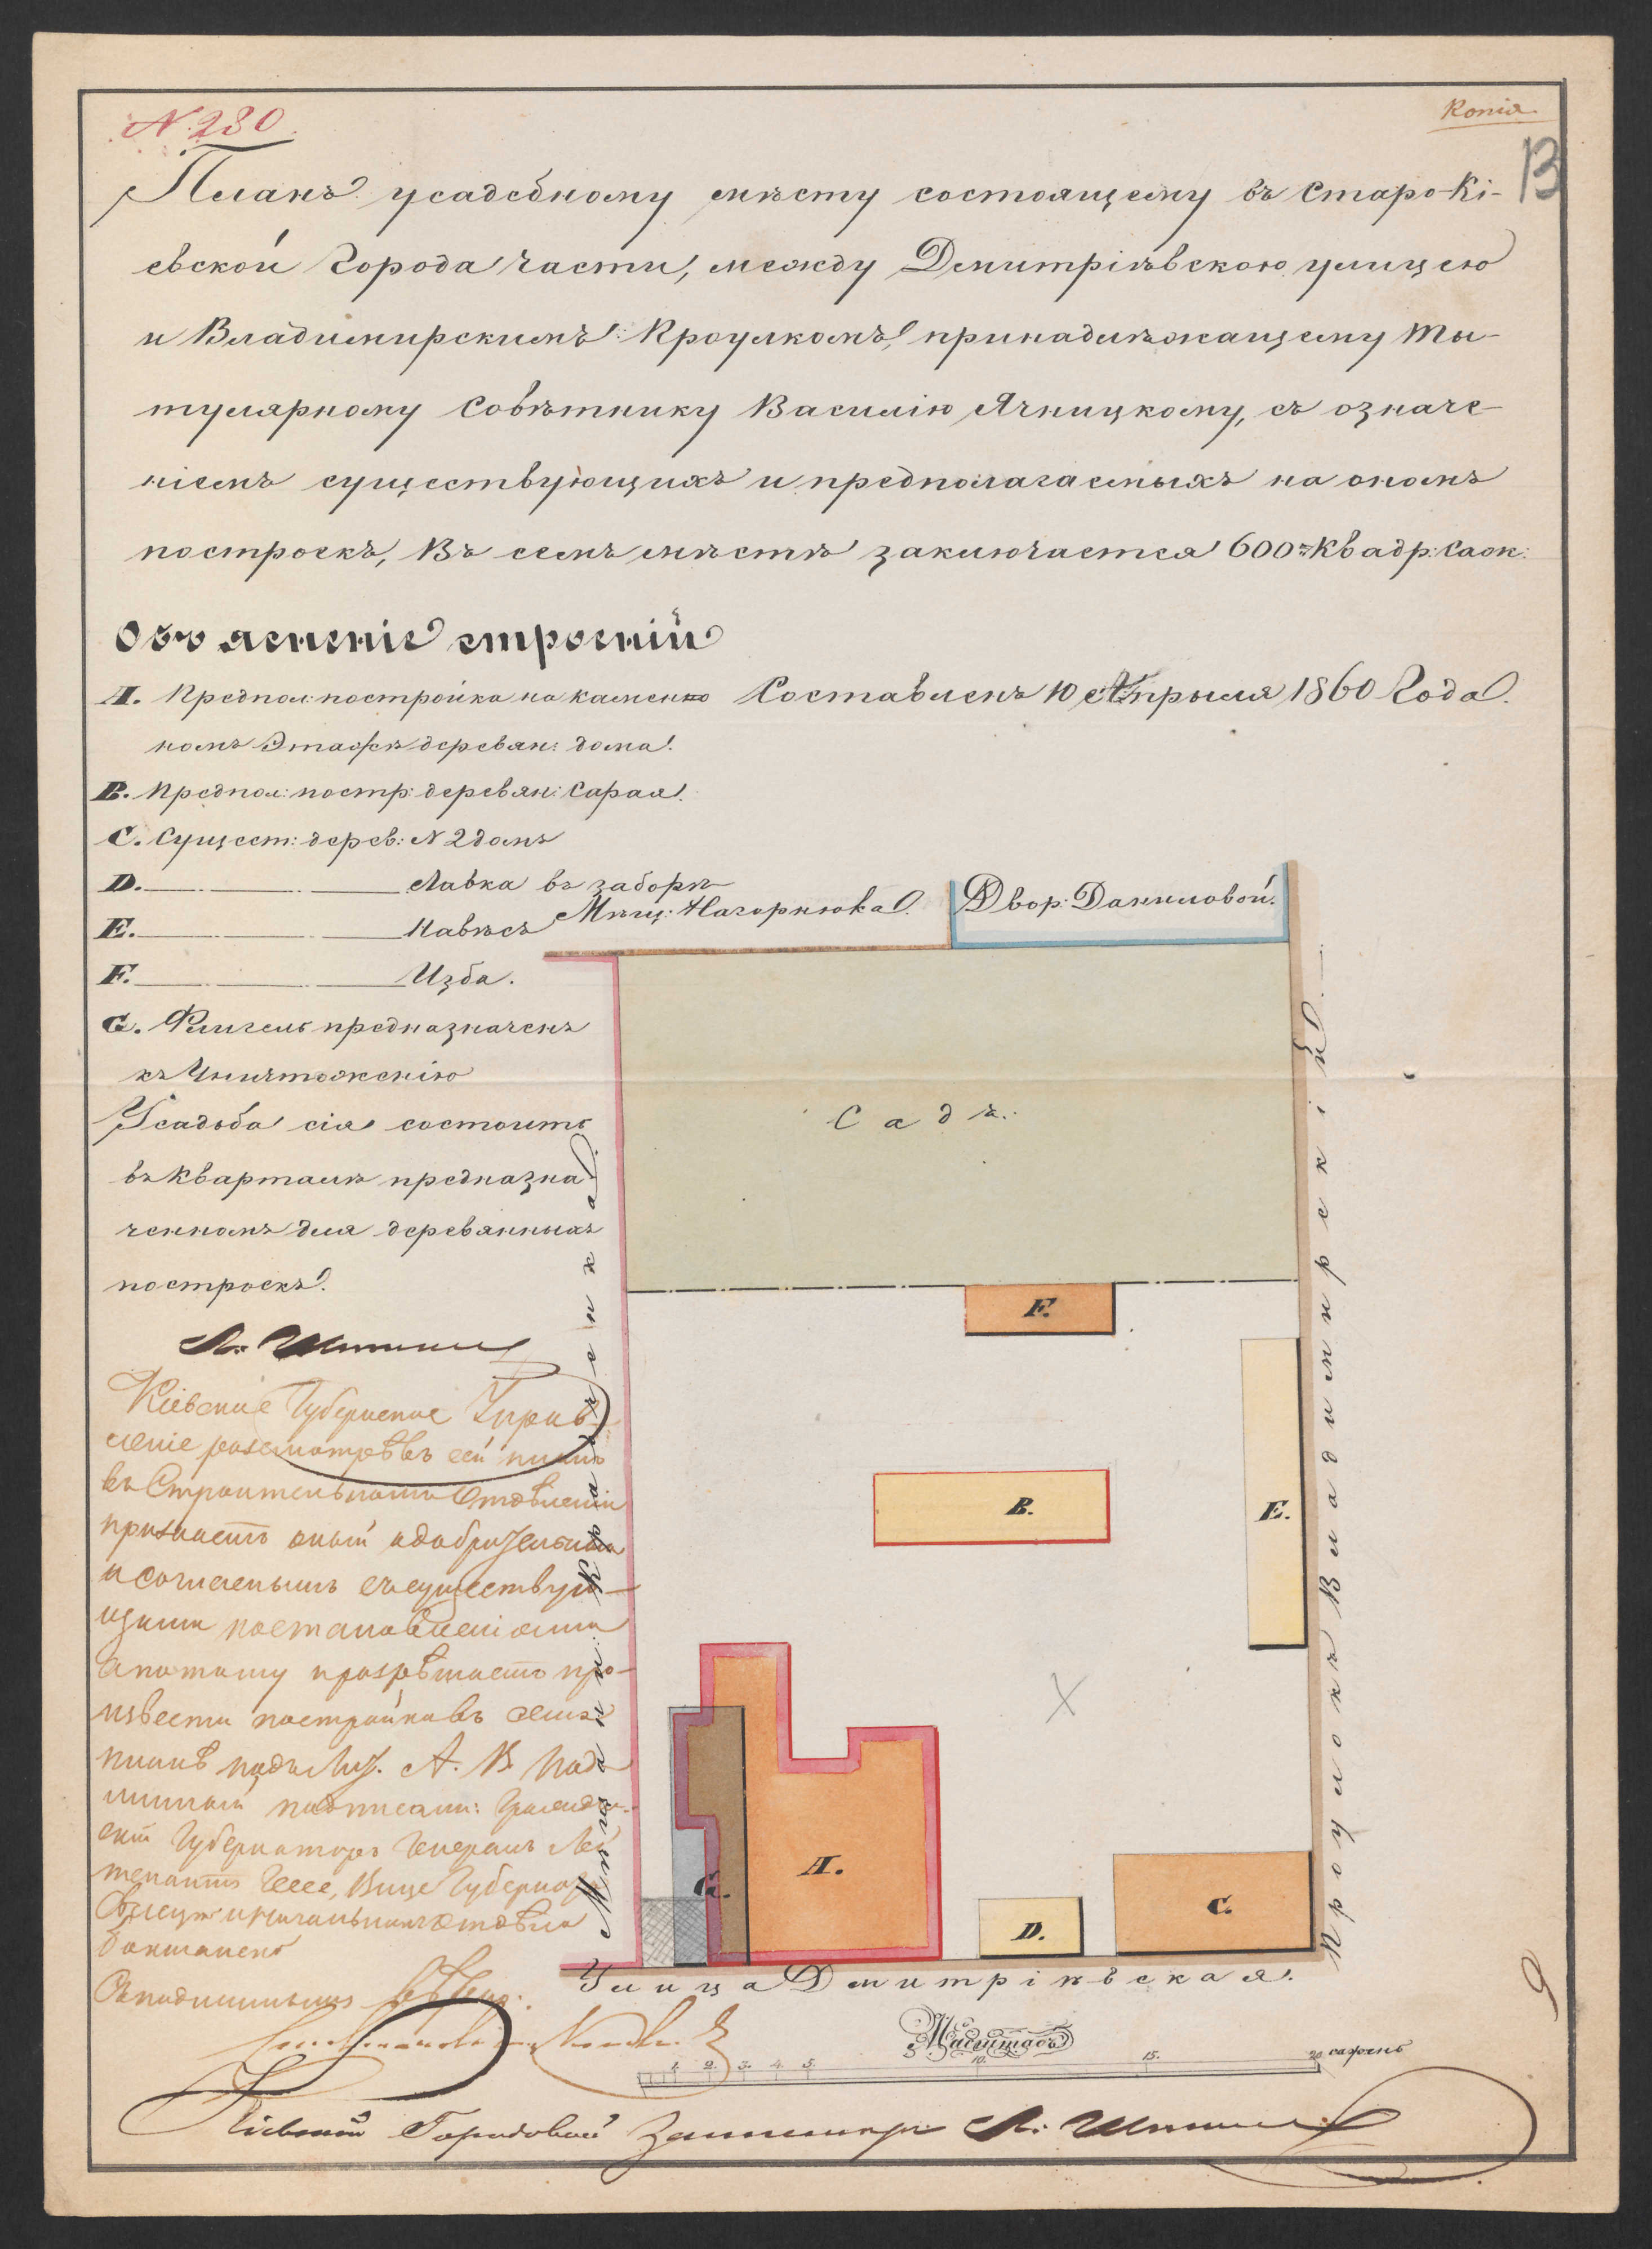 N. 280
Копія
13
Планъ усадебному мѣсту состоящему въ Старо-Кі-
евской Города части, между Дмитріевскою улицею
и Владимирскимъ Кроулкомъ, принадлѣжащему Ты-
тулярному Совѣтнику Василію Ячницкому, съ означе-
ніемъ существующихъ и предполагаемыхъ на ономъ
построекъ, Въ семъ мѣстѣ заключается 600 Квадр: Саж:
Объясненіе строеній
Составленъ 10 Апрыля 1860 Года.
А. Предпол: постройка на каменно
номъ Этажѣ деревян: дома.
B. Предпол: постр: деревян: Сарая.
C. Сущест: дерев: N 2 домъ
D. Лавка въ заборѣ
E. Навѣсъ
F. Изба.
G. Флигель предназначенъ
къ Уничтоженію
Усадьба сія состоитъ
въ Кварталѣ предназна
ченномъ для деревянныхъ
построекъ.
Кіевское Губернское Прав-
леніе разсмотрѣвъ сей планъ
въ Строительномъ Отдѣленіи
признаетъ оный одобрительнымъ
и согласнымъ съ существую-
щими постановленіями
а потому разрѣшаетъ про-
извести постройки въ семъ
планѣ подъ Лит. А. В. Под
линный подписали: Гражда-
скій Губернаторъ Генералъ Лей
тенантъ Гессе, Вице Губернаторъ
и начальникъ отдѣла
Съ подлиннымъ
Мѣщ: Нагорнюка.
Двор: Данниловой.
Садъ.
F.
B.
E.
A.
G.
D.
C.
Улица Дмитріѣвская.
Проулокъ Владимирскій.
Масштабъ
1. 2. 3. 4. 5. 10. 15. 20 сажень
Кіевскій Городовой
9